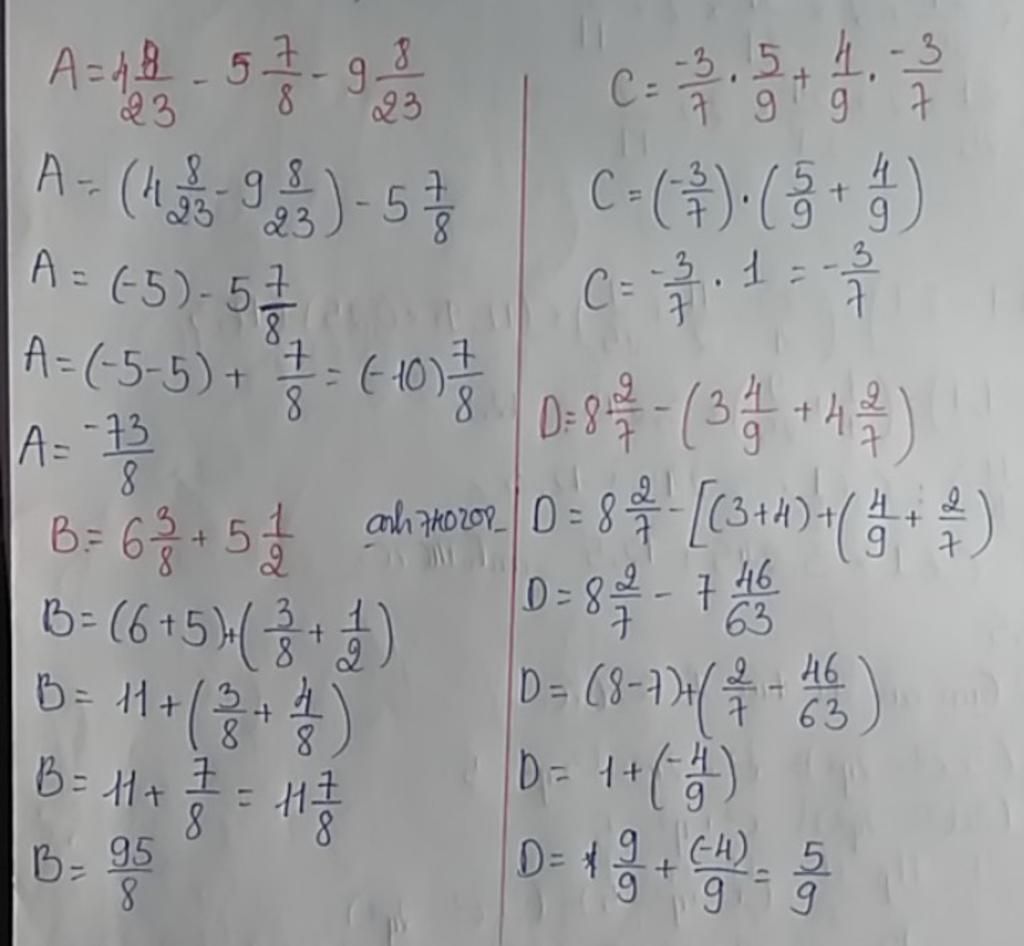 A = 4 8/23 - 5 7/8 - 9 8/23
A = (4 8/23 - 9 8/23) - 5 7/8
A = (-5) - 5 7/8
A = (-5-5) + 7/8 = (-10) 7/8
A = -73/8
B = 6 3/8 + 5 1/2
B = (6+5)+(3/8 + 1/2)
B = 11 + (3/8 + 4/8)
B = 11 + 7/8 = 11 7/8
B = 95/8
C = -3/7 . 5/9 + 4/9 . -3/7
C = (-3/7) . (5/9 + 4/9)
C = -3/7 . 1 = -3/7
D = 8 2/7 - (3 4/9 + 4 2/7)
D = 8 2/7 - [(3+4)+(4/9 + 2/7)
D = 8 2/7 - 7 46/63
D = (8-7)+(2/7 - 46/63)
D = 1+(-4/9)
D = 9/9 + (-4)/9 = 5/9